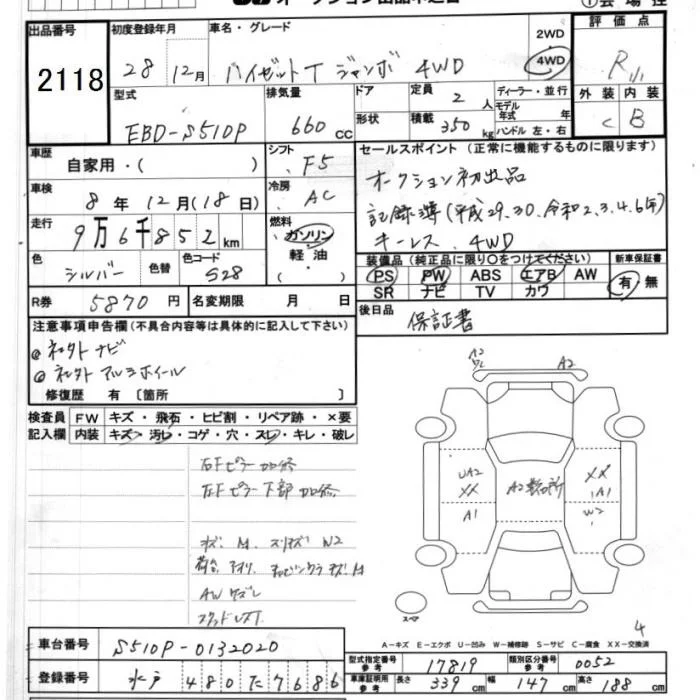 出品番号 2118
初度登録年月 28年 12月
車名・グレード ハイゼットT ジャンボ 4WD
2WD
4WD
評価点
型式 EBD-S510P
排気量 660 CC
ドア
形状
定員 2 人
積載 350 kg
ディーラー・並行
モデル年式 年
ハンドル 左・右
外装 C
内装 B
車歴 自家用・( )
シフト F5
車検 8年 12月 (18日)
冷房 AC
走行 9万6千852km
燃料 ガソリン
軽油
( )
色 シルバー 色替
色コード S28
R券 5870 円
名変期限 月 日
セールスポイント (正常に機能するものに限ります)
オークション初出品
記録簿(平成29.30.令和2.3.4.6年)
キーレス、4WD
装備品 (純正品に限り○をつけてください)
PS PW ABS エアB AW
SR ナビ TV カワ
新車保証書
有・無
後日品 保証書
注意事項申告欄 (不具合内容等は具体的に記入して下さい)
ナビ
アルミホイール
修復歴 有 〔箇所 〕
検査員 FW キズ・飛石・ヒビ割・リペア跡・×要
記入欄 内装 キズ・汚レ・コゲ・穴・スレ・キレ・破レ
右Fピラー 加修
左Fピラー 下部 加修
キズ、M、スリキズ W2
AW
A2
A2
UA2
XX
A1
A2
XX
A1
W2
スペア
4
A-キズ E-エクボ U-凹み W-補修跡 S-サビ C-腐食 XX-交換済
車台番号 S510P-0132020
登録番号 水戸 480 た 7686
型式指定番号 参考 17819
類別区分番号 参考 0052
車庫証明用 参考 長さ 339 cm 幅 147 cm 高さ 188 cm